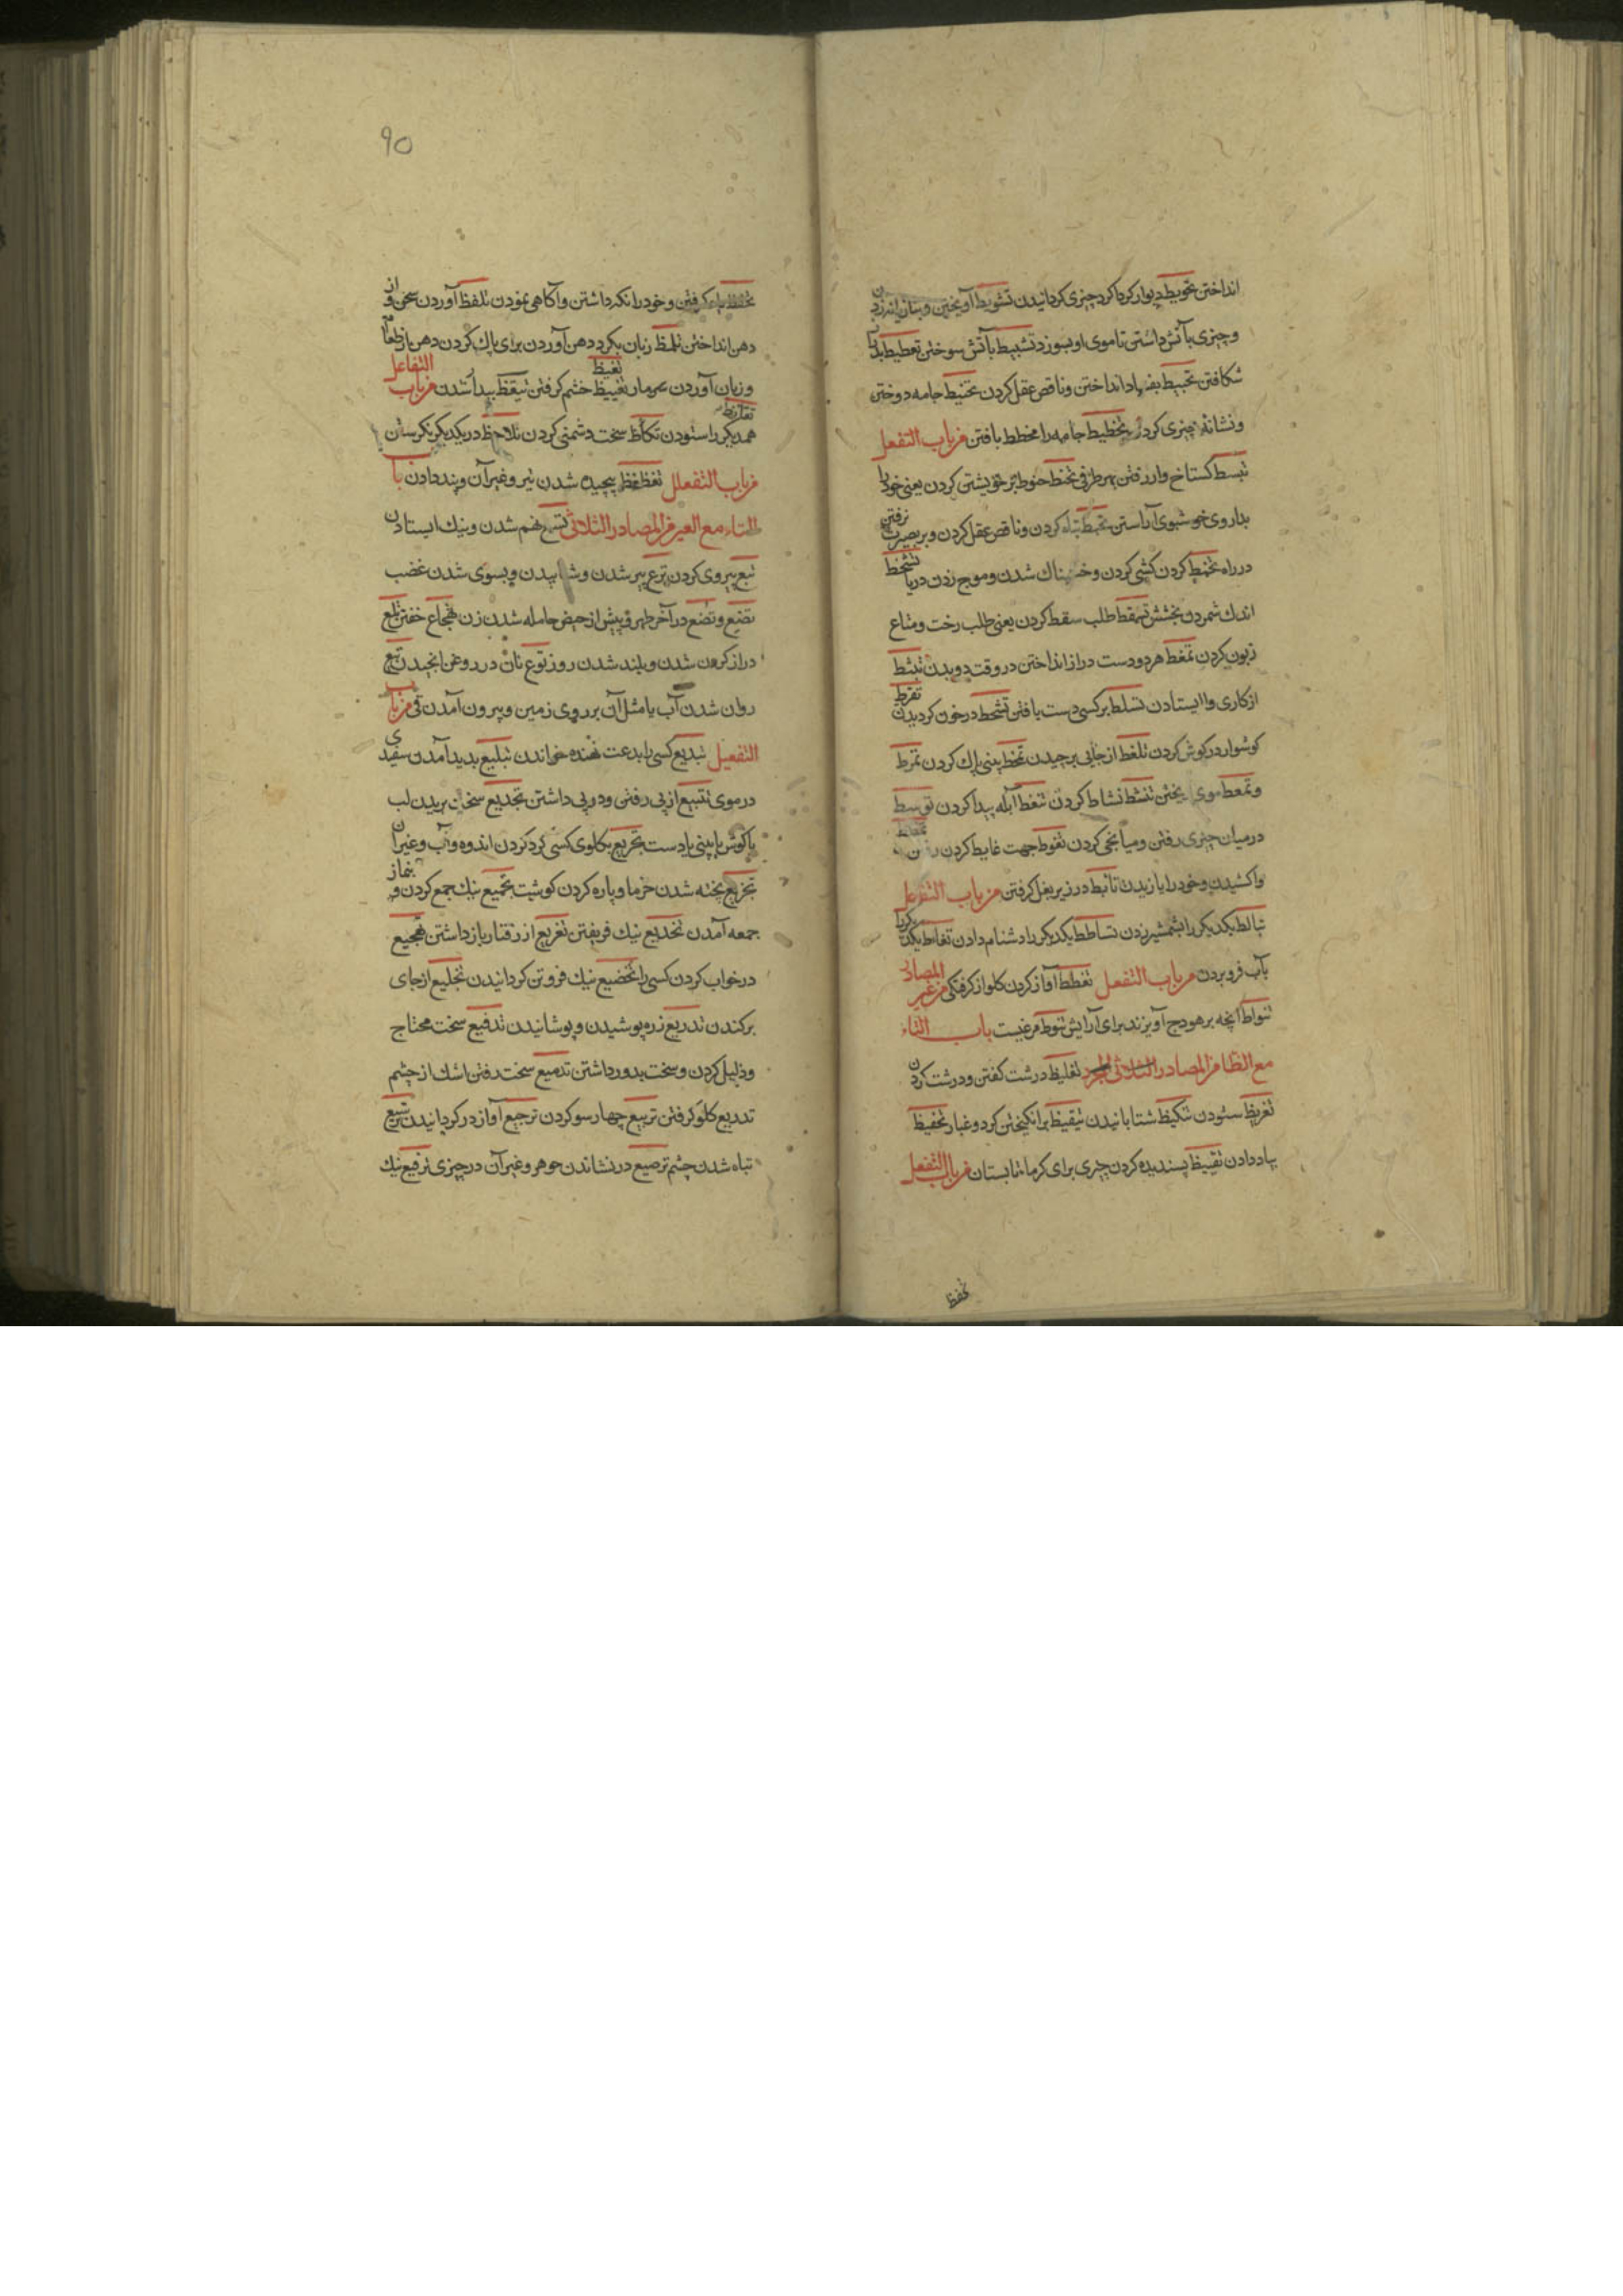 انداختن تحویط دیوار کرداکرد چیزی کردانیدن تشویط آویختن
وچیزی بآتش داشتن تاموی او بسوزد تشییط بآتش سوختن تعطیط
شکافتن تخبیط انداختن وناقص عقل کردن تخییط جامه دوختن
ونشانه چیزی کردن تخطیط جامه را مخطط بافتن من باب التفعل
تبسط کستاخ وار رفتن بهر طرفی تحنط حنوط بر خویشتن کردن یعنی خود را
بداروی خوشبوی آراستن تخبط تباه کردن وناقص عقل کردن وبر بصیرت نرفتن
در راه تخمط کردن کشی کردن وخشمناک شدن وموج زدن دریا تسخط
اندک شمردن بخشش تسقط طلب سقط کردن یعنی طلب رخت ومتاع
زبون کردن تمغط هر دو دست دراز انداختن در وقت دویدن تثبط
از کاری واایستادن تسلط بر کسی دست یافتن تشحط در خون کردیدن تقرط
کوشوار در کوش کردن تلقط از جایی برچیدن تمخط بینی پاک کردن تمرط
وتمعط موی ریختن تنشط نشاط کردن تنفط آبله پیدا کردن توسط
در میان چیزی رفتن ومیانجی کردن تغوط جهت غایط کردن رفتن
واکشیدن وخود را یازیدن تأبط در زیر بغل کرفتن من باب التفاعل
تبالط یکدیکر را بشمشیر زدن تساطط یکدیکر را دشنام دادن تغاط یکدیکر را
بآب فرو بردن من باب التفعل تغطط آواز کردن کلو از کرفتکی من غیر المصادر
تنواط آنچه بر هودج آویزند برای آرایش تنوط مرغیست باب التاء
مع الظا من المصادر الثلاثی المجرد تغلیظ درشت کفتن ودرشت کردن
تقریظ ستودن تنکیظ شتابانیدن تیقیظ برانکیختن کرد وغبار تحفیظ
یاد دادن تقییظ پسندیده کردن چیزی برای کرما تابستان من باب التفعل
تحفظ
90
تحفظ یاد کرفتن وخود را نکه داشتن وآکاهی نمودن تلفظ آوردن سخن واز
دهن انداختن تلمظ زبان بکرد دهن آوردن برای پاک کردن دهن از طعام
وزبان آوردن تغیظ خشم کرفتن تیقظ بیدار شدن من باب التفاعل
همدیکر را ستودن تکاظ سخت دشمنی کردن تلاحظ در یکدیکر نکرستن
من باب التفعلل تغظغظ پیچیده شدن تیر وغیر آن وپند دادن باب
التاء مع العین من المصادر الثلاثی تسع نهم شدن ونیک ایستادن
تبع پیروی کردن ترع پر شدن وشتابیدن وبسوی شدن غضب
تضع وتضع در آخر طهر وپیش از حیض حامله شدن زن تهجاع خفتن تلع
دراز کردن شدن وبلند شدن روز توع نان در روغن انجیدن تیع
روان شدن آب یا مثل آن بر روی زمین وبیرون آمدن قی من باب
التفعیل تبدیع کسی را بدعت نهنده خواندن تبلیع بدید آمدن سفیدی
در موی تتبیع از پی رفتن ودر پی داشتن تجدیع سخت بریدن لب
یا کوش یا بینی یا دست تجریع بکلوی کسی کرد کردن اندوه وآب وغیر آن
تجزیع پخته شدن خرما وپاره کردن کوشت تجمیع نیک جمع کردن وبنماز
جمعه آمدن تخدیع نیک فریفتن تفریع از رفتار باز داشتن تهجیع
در خواب کردن کسی را تخضیع نیک فروتن کردانیدن تخلیع از جای
برکندن تدریع زره پوشیدن وپوشانیدن تدقیع سخت محتاج
وذلیل کردن وسخت بدور داشتن تدمیع سخت رفتن اشک از چشم
تذریع کلو کرفتن تربیع چهار سو کردن ترجیع آواز در کردانیدن ترسیع
تباه شدن چشم ترصیع در نشاندن جوهر وغیر آن در چیزی ترفیع نیک